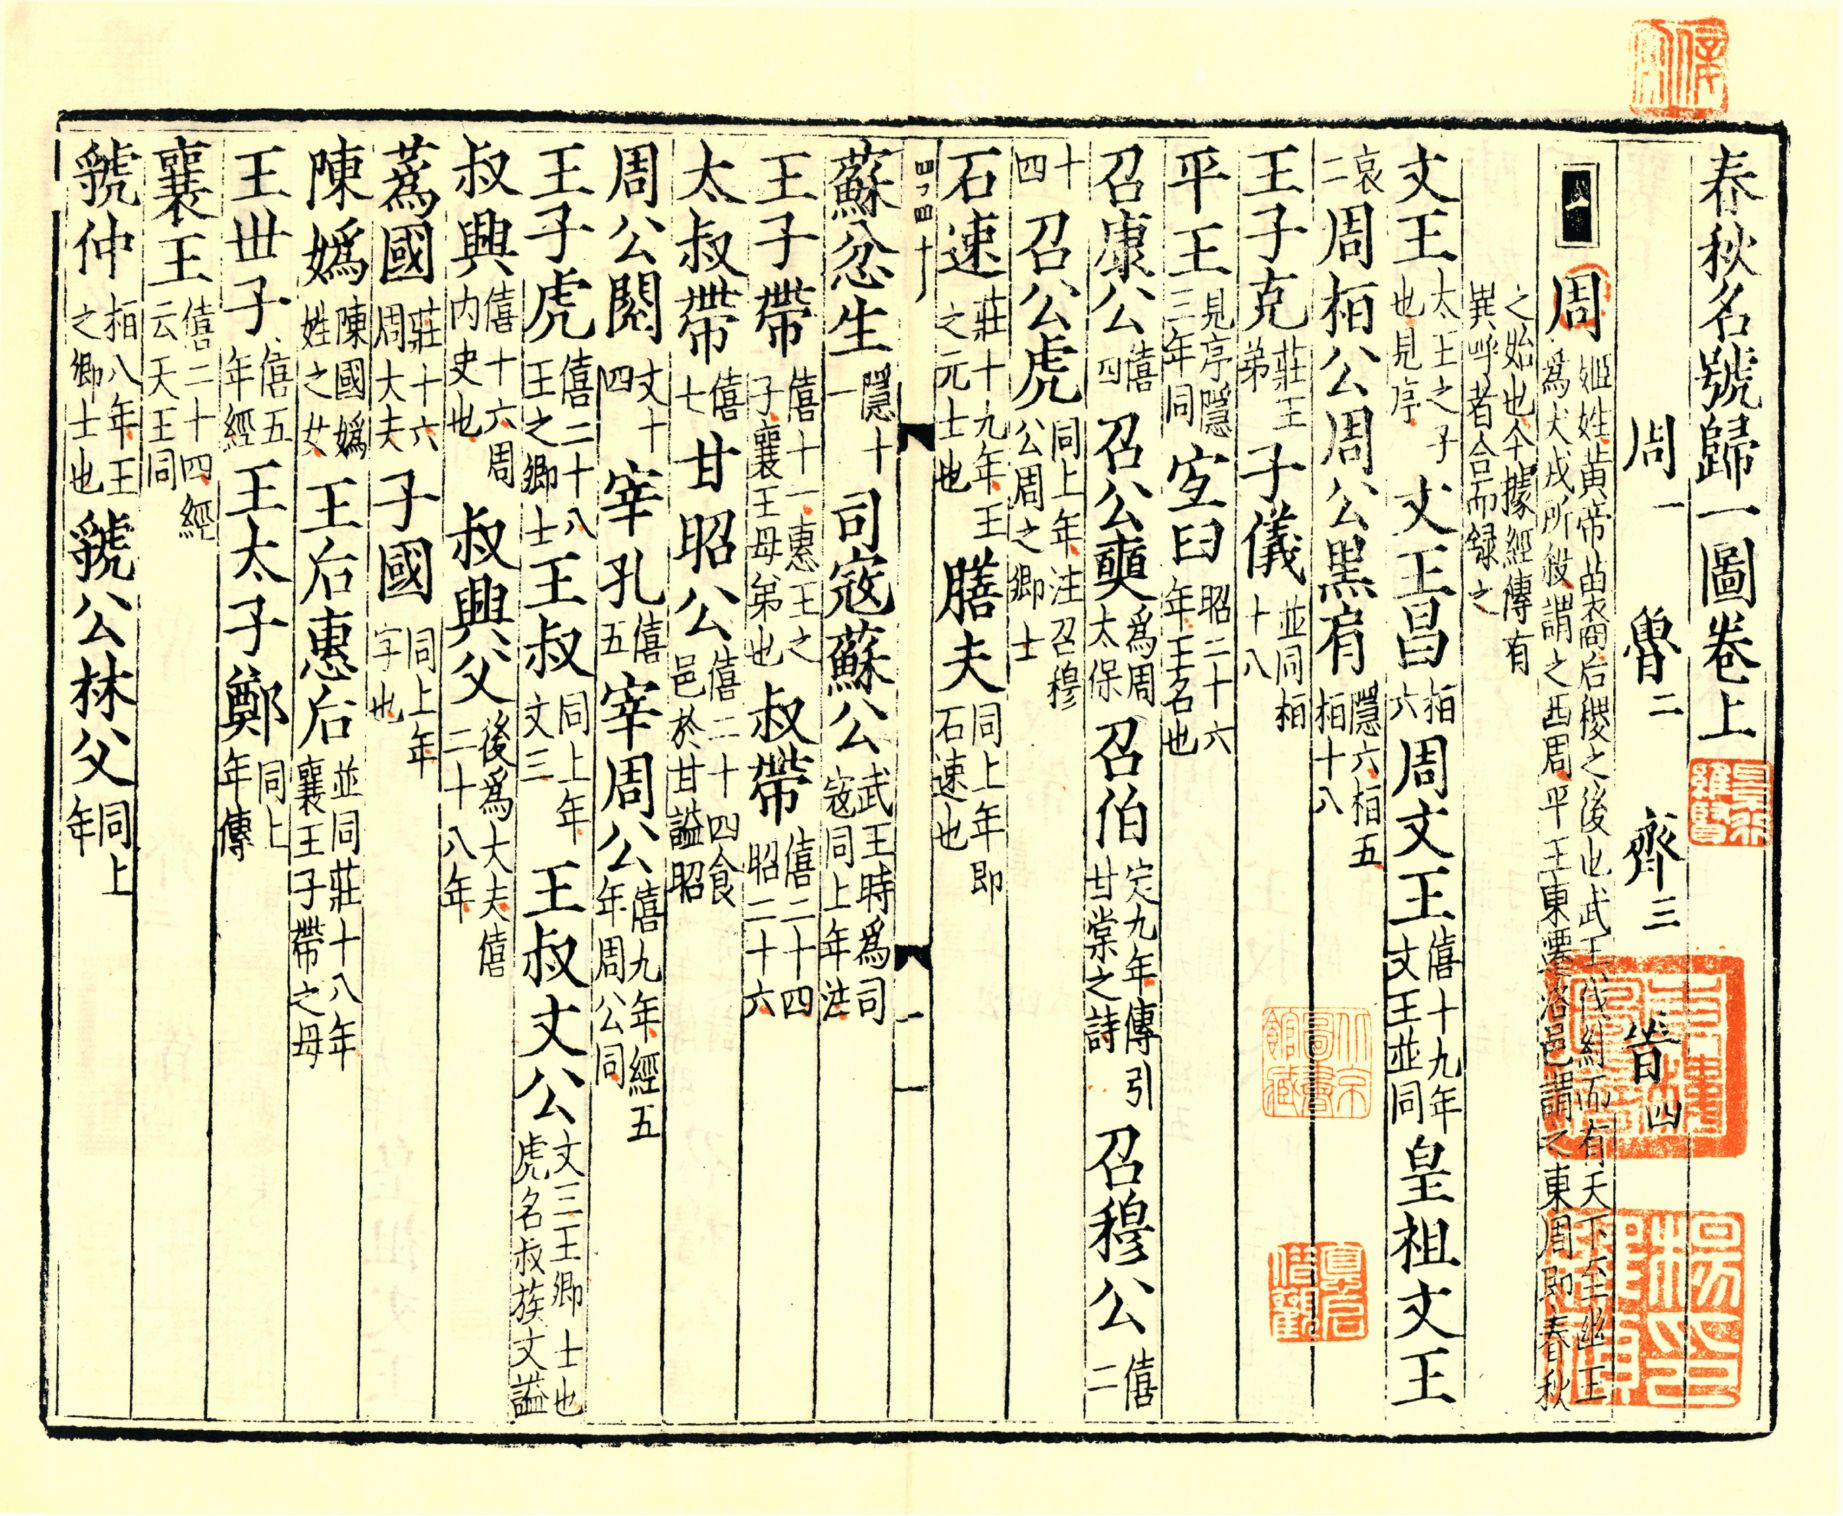 春秋名號歸一圖卷上
周一 魯二 齊三 晉四
周 姬姓黃帝苗裔后稷之後也武王伐紂而有天下至幽王
爲犬戎所殺謂之西周平王東遷洛邑謂之東周即春秋
之始也今據經傳有
異呼者合而録之
文王 太王之子也見序 文王昌 桓六 周文王 僖十九年文王並同 皇祖文王
哀二 周桓公 周公黑肩 隱六桓五桓十八
王子克 莊王弟 子儀 並同桓十八
平王 見序隱三年同 宜臼 昭二十六年王名也
召康公 僖四 召公奭 爲周太保 召伯 定九年傳引甘棠之詩 召穆公 僖二
十四 召公虎 同上年注召穆公周之卿士
石速 莊十九年王之元士也 膳夫 同上年即石速也
蘇忿生 隱十一 司寇蘇公 武王時爲司寇同上年注
王子帶 僖十一惠王之子襄王母弟也 叔帶 僖二十四昭二十六
太叔帶 僖七 甘昭公 僖二十四食邑於甘謚昭
周公閱 文十四 宰孔 僖五 宰周公 僖九年經五年周公同
王子虎 僖二十八王之卿士 王叔 同上年文三 王叔文公 文三王卿士也虎名叔族文謚
叔興 僖十六周内史也 叔興父 後爲大夫僖二十八年
蒍國 莊十六周大夫 子國 同上年字也
陳嬀 陳國嬀姓之女 王后惠后 並同莊十八年襄王子帶之母
王世子 僖五年經 王太子鄭 同上年傳
襄王 僖二十四經云天王同
虢仲 桓八年王之卿士也 虢公林父 同上年